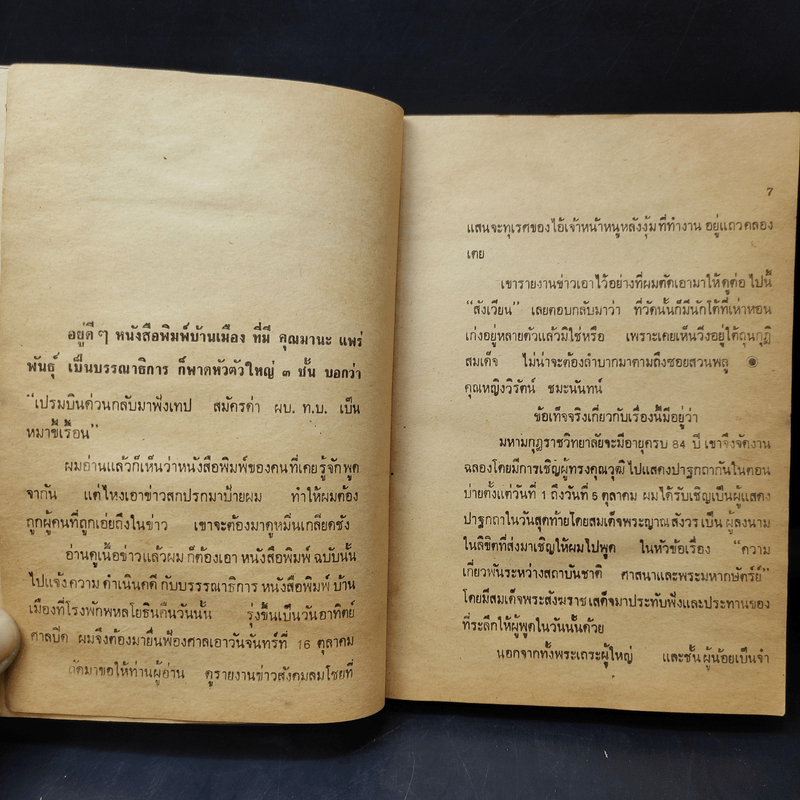 อยู่ดี ๆ หนังสือพิมพ์บ้านเมือง ที่มี คุณมานะ แพร่
พันธุ์ เป็นบรรณาธิการ ก็พาดหัวตัวใหญ่ ๓ ชั้น บอกว่า
“เปรมบินด่วนกลับมาฟังเทป สมัครด่า ผบ. ท.บ. เป็น
หมาขี้เรื้อน”
ผมอ่านแล้วก็เห็นว่าหนังสือพิมพ์ของคนที่เคยรู้จักพูด
จากัน แต่ไหงเอาข่าวสกปรกมาป้ายผม ทำให้ผมต้อง
ถูกผู้คนที่ถูกเอ่ยถึงในข่าว เขาจะต้องมาดูหมิ่นเกลียดชัง
อ่านดูเนื้อข่าวแล้วผม ก็ต้องเอา หนังสือพิมพ์ ฉบับนั้น
ไปแจ้งความ ดำเนินคดี กับบรรรณาธิการ หนังสือพิมพ์ บ้าน
เมืองที่โรงพักพหลโยธินคืนวันนั้น รุ่งขึ้นเป็นวันอาทิตย์
ศาลปิด ผมจึงต้องมายื่นฟ้องศาลเอาวันจันทร์ที่ 16 ตุลาคม
ตัดมาขอให้ท่านผู้อ่าน ดูรายงานข่าวสังคมลมโชยที่
7
แสนจะทุเรศของไอ้เจ้าหน้าหนูหลังงุ้ม ที่ทำงาน อยู่แถวคลอง
เตย
เขารายงานข่าวเอาไว้อย่างที่ผมตัดเอามาให้ดูต่อ ไปนี้
“สังเวียน” เลยตอบกลับมาว่า ที่วัดนั้นก็มีนักโต้ที่เห่าหอน
เก่งอยู่หลายตัวแล้วมิใช่หรือ เพราะเคยเห็นวิ่งอยู่ใต้ถุนกุฏิ
สมเด็จ ไม่น่าจะต้องลำบากมาตามถึงซอยสวนพลู ●
คุณหญิงวิรัตน์ ชมะนันทน์
ข้อเท็จจริงเกี่ยวกับเรื่องนี้มีอยู่ว่า
มหามกุฎราชวิทยาลัยจะมีอายุครบ 84 ปี เขาจึงจัดงาน
ฉลองโดยมีการเชิญผู้ทรงคุณวุฒิ ไปแสดงปาฐกถากันในตอน
บ่ายตั้งแต่วันที่ 1 ถึงวันที่ 5 ตุลาคม ผมได้รับเชิญเป็นผู้แสดง
ปาฐกถาในวันสุดท้ายโดยสมเด็จพระญาณสังวร เป็น ผู้ลงนาม
ในลิขิตที่ส่งมาเชิญให้ผมไปพูด ในหัวข้อเรื่อง “ความ
เกี่ยวพันระหว่างสถาบันชาติ ศาสนาและพระมหากษัตริย์”
โดยมีสมเด็จพระสังฆราช เสด็จมาประทับฟังและประทานของ
ที่ระลึกให้ผู้พูดในวันนั้นด้วย
นอกจากทั้งพระเถระผู้ใหญ่ และชั้นผู้น้อยเป็นจำ